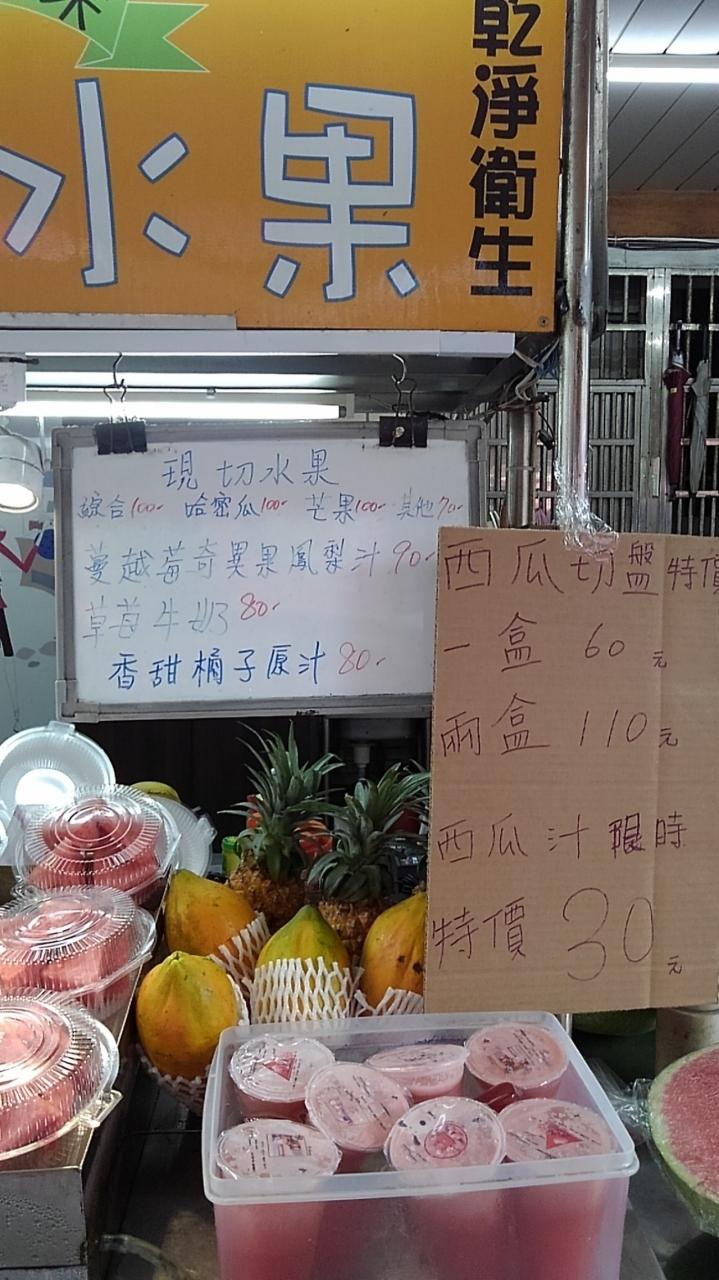 水果
乾淨衛生
現切水果
綜合100- 哈密瓜100- 芒果100- 其他70-
蔓越莓奇異果鳳梨汁90-
草莓牛奶80-
香甜橘子原汁80-
西瓜切盤特價
一盒 60元
兩盒 110元
西瓜汁限時
特價 30元